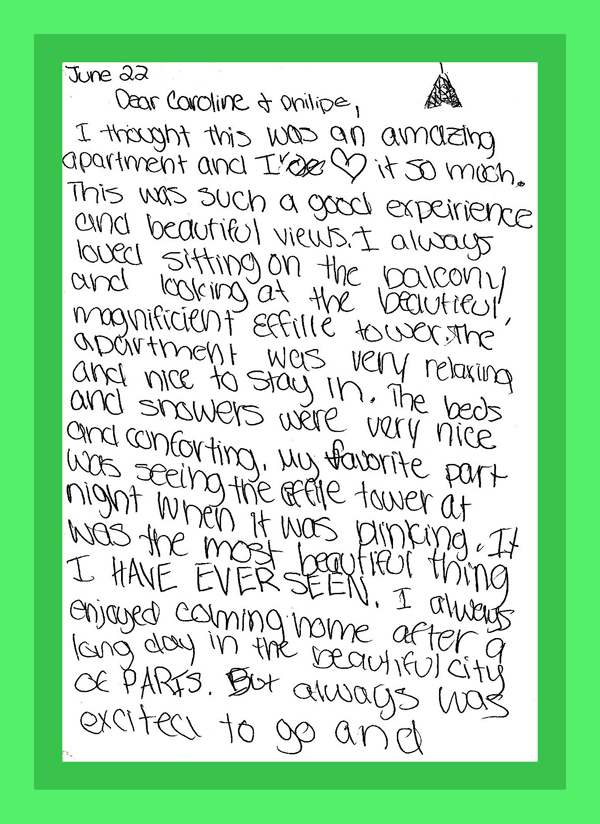 June 22
Dear Caroline & Philipe,
I thought this was an amazing
apartment and I ♡ it so much.
This was such a good expeirience
and beautiful views. I always
loved sitting on the balcony
and looking at the beautiful,
magnificient Effille tower. The
apartment was very relaxing
and nice to stay in. The beds
and showers were very nice
and conforting. My favorite part
was seeing the effile tower at
night when it was blinking. It
was the most beautiful thing
I HAVE EVER SEEN. I always
enjoyed coming home after a
long day in the beautiful city
of PARIS. But always was
excited to go and